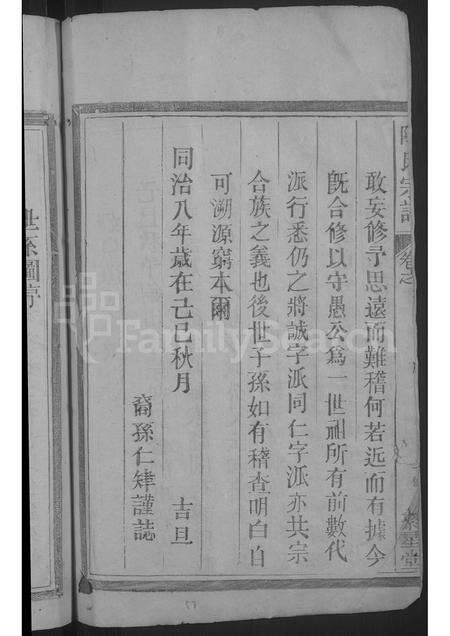 陳氏宗譜
卷之
聚星堂
敢妄修寻思遠而難稽何若近而有據今
既合修以守愚公爲一世祖所有前數代
派行悉仍之將誠字派同仁字派亦共宗
合族之義也後世子孫如有稽查明白自
可溯源窮本爾
同治八年歲在己巳秋月　吉旦
裔孫仁肂謹誌
世系圖序
FamilySearch